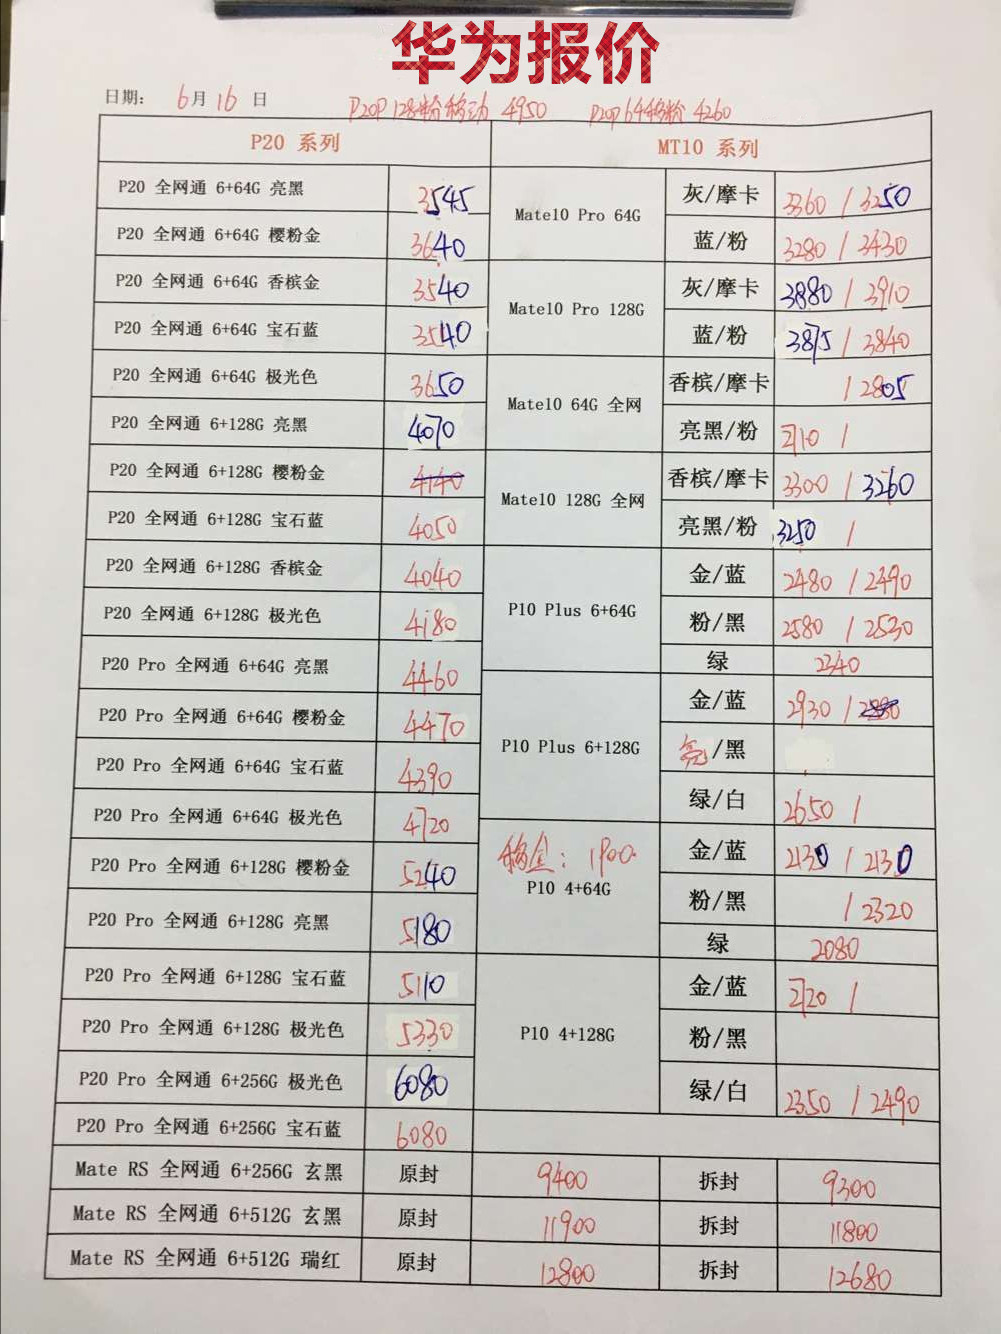 华为报价
日期： 6月16日 P20P 128粉移动 4950 P20P 64移粉 4260
P20 系列 MT10 系列
P20 全网通 6+64G 亮黑 3545 Mate10 Pro 64G 灰/摩卡 3360 / 3250
P20 全网通 6+64G 樱粉金 3640 蓝/粉 3280 / 3430
P20 全网通 6+64G 香槟金 3540 Mate10 Pro 128G 灰/摩卡 3880 / 3910
P20 全网通 6+64G 宝石蓝 3540 蓝/粉 3875 / 3840
P20 全网通 6+64G 极光色 3650 Mate10 64G 全网 香槟/摩卡 / 2805
P20 全网通 6+128G 亮黑 4070 亮黑/粉 2710 /
P20 全网通 6+128G 樱粉金 4140 Mate10 128G 全网 香槟/摩卡 3300 / 3260
P20 全网通 6+128G 宝石蓝 4050 亮黑/粉 3250 /
P20 全网通 6+128G 香槟金 4040 P10 Plus 6+64G 金/蓝 2480 / 2490
P20 全网通 6+128G 极光色 4180 粉/黑 2580 / 2530
P20 Pro 全网通 6+64G 亮黑 4460 绿 2340
P20 Pro 全网通 6+64G 樱粉金 4470 P10 Plus 6+128G 金/蓝 2930 /
P20 Pro 全网通 6+64G 宝石蓝 4390 亮/黑
P20 Pro 全网通 6+64G 极光色 4720 绿/白 2650 /
P20 Pro 全网通 6+128G 樱粉金 5240 移金： 1900 P10 4+64G 金/蓝 2130 / 2130
P20 Pro 全网通 6+128G 亮黑 5180 粉/黑 / 2320
绿 2080
P20 Pro 全网通 6+128G 宝石蓝 5110 P10 4+128G 金/蓝 2720 /
P20 Pro 全网通 6+128G 极光色 5330 粉/黑
P20 Pro 全网通 6+256G 极光色 6080 绿/白 2350 / 2490
P20 Pro 全网通 6+256G 宝石蓝 6080
Mate RS 全网通 6+256G 玄黑 原封 9400 拆封 9300
Mate RS 全网通 6+512G 玄黑 原封 11900 拆封 11800
Mate RS 全网通 6+512G 瑞红 原封 12800 拆封 12680